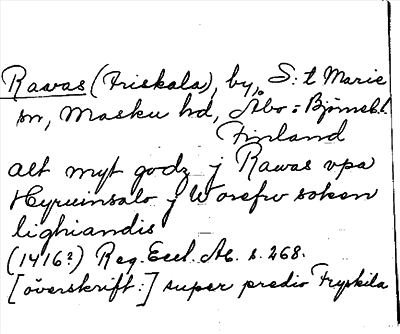 Rawas (Friskala), by, S:t Marie
sn, Masku hd, Åbo o Björnebl.
Finland
alt myt godz j Rawas vpa
Hyruinsalo j Worefrw soken
lighiandis
(1416?) Reg. Eccl. Ab. s. 268.
[överskrift:] super predio Fryskila